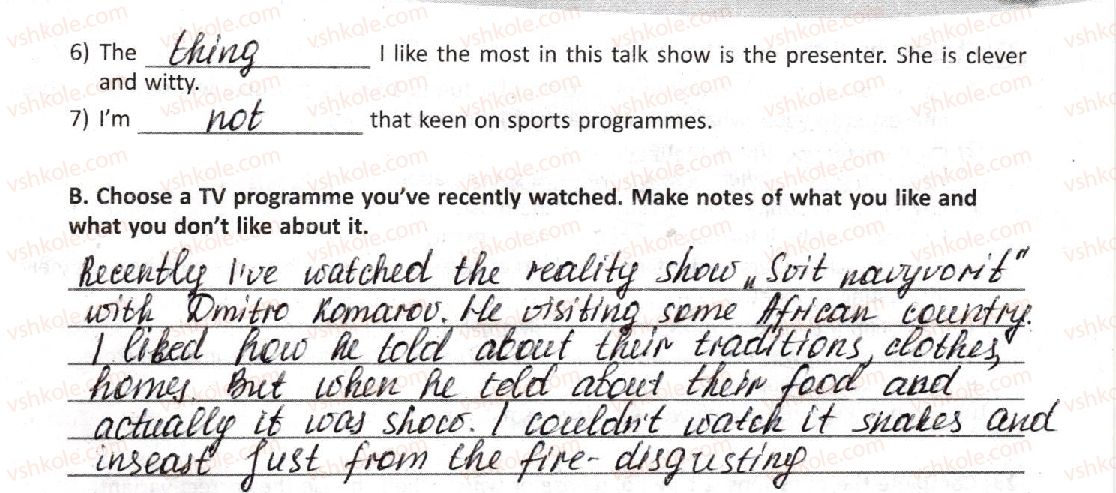 6) The thing I like the most in this talk show is the presenter. She is clever
and witty.
7) I'm not that keen on sports programmes.
B. Choose a TV programme you've recently watched. Make notes of what you like and
what you don't like about it.
Recently I've watched the reality show „Svit navyvorit"
with Dmitro Komarov. He visiting some African country.
I liked how he told about their traditions, clothes,
homes. But when he told about their food and
actually it was show. I couldn't watch it snakes and
inseast just from the fire - disgusting
vshkole.com